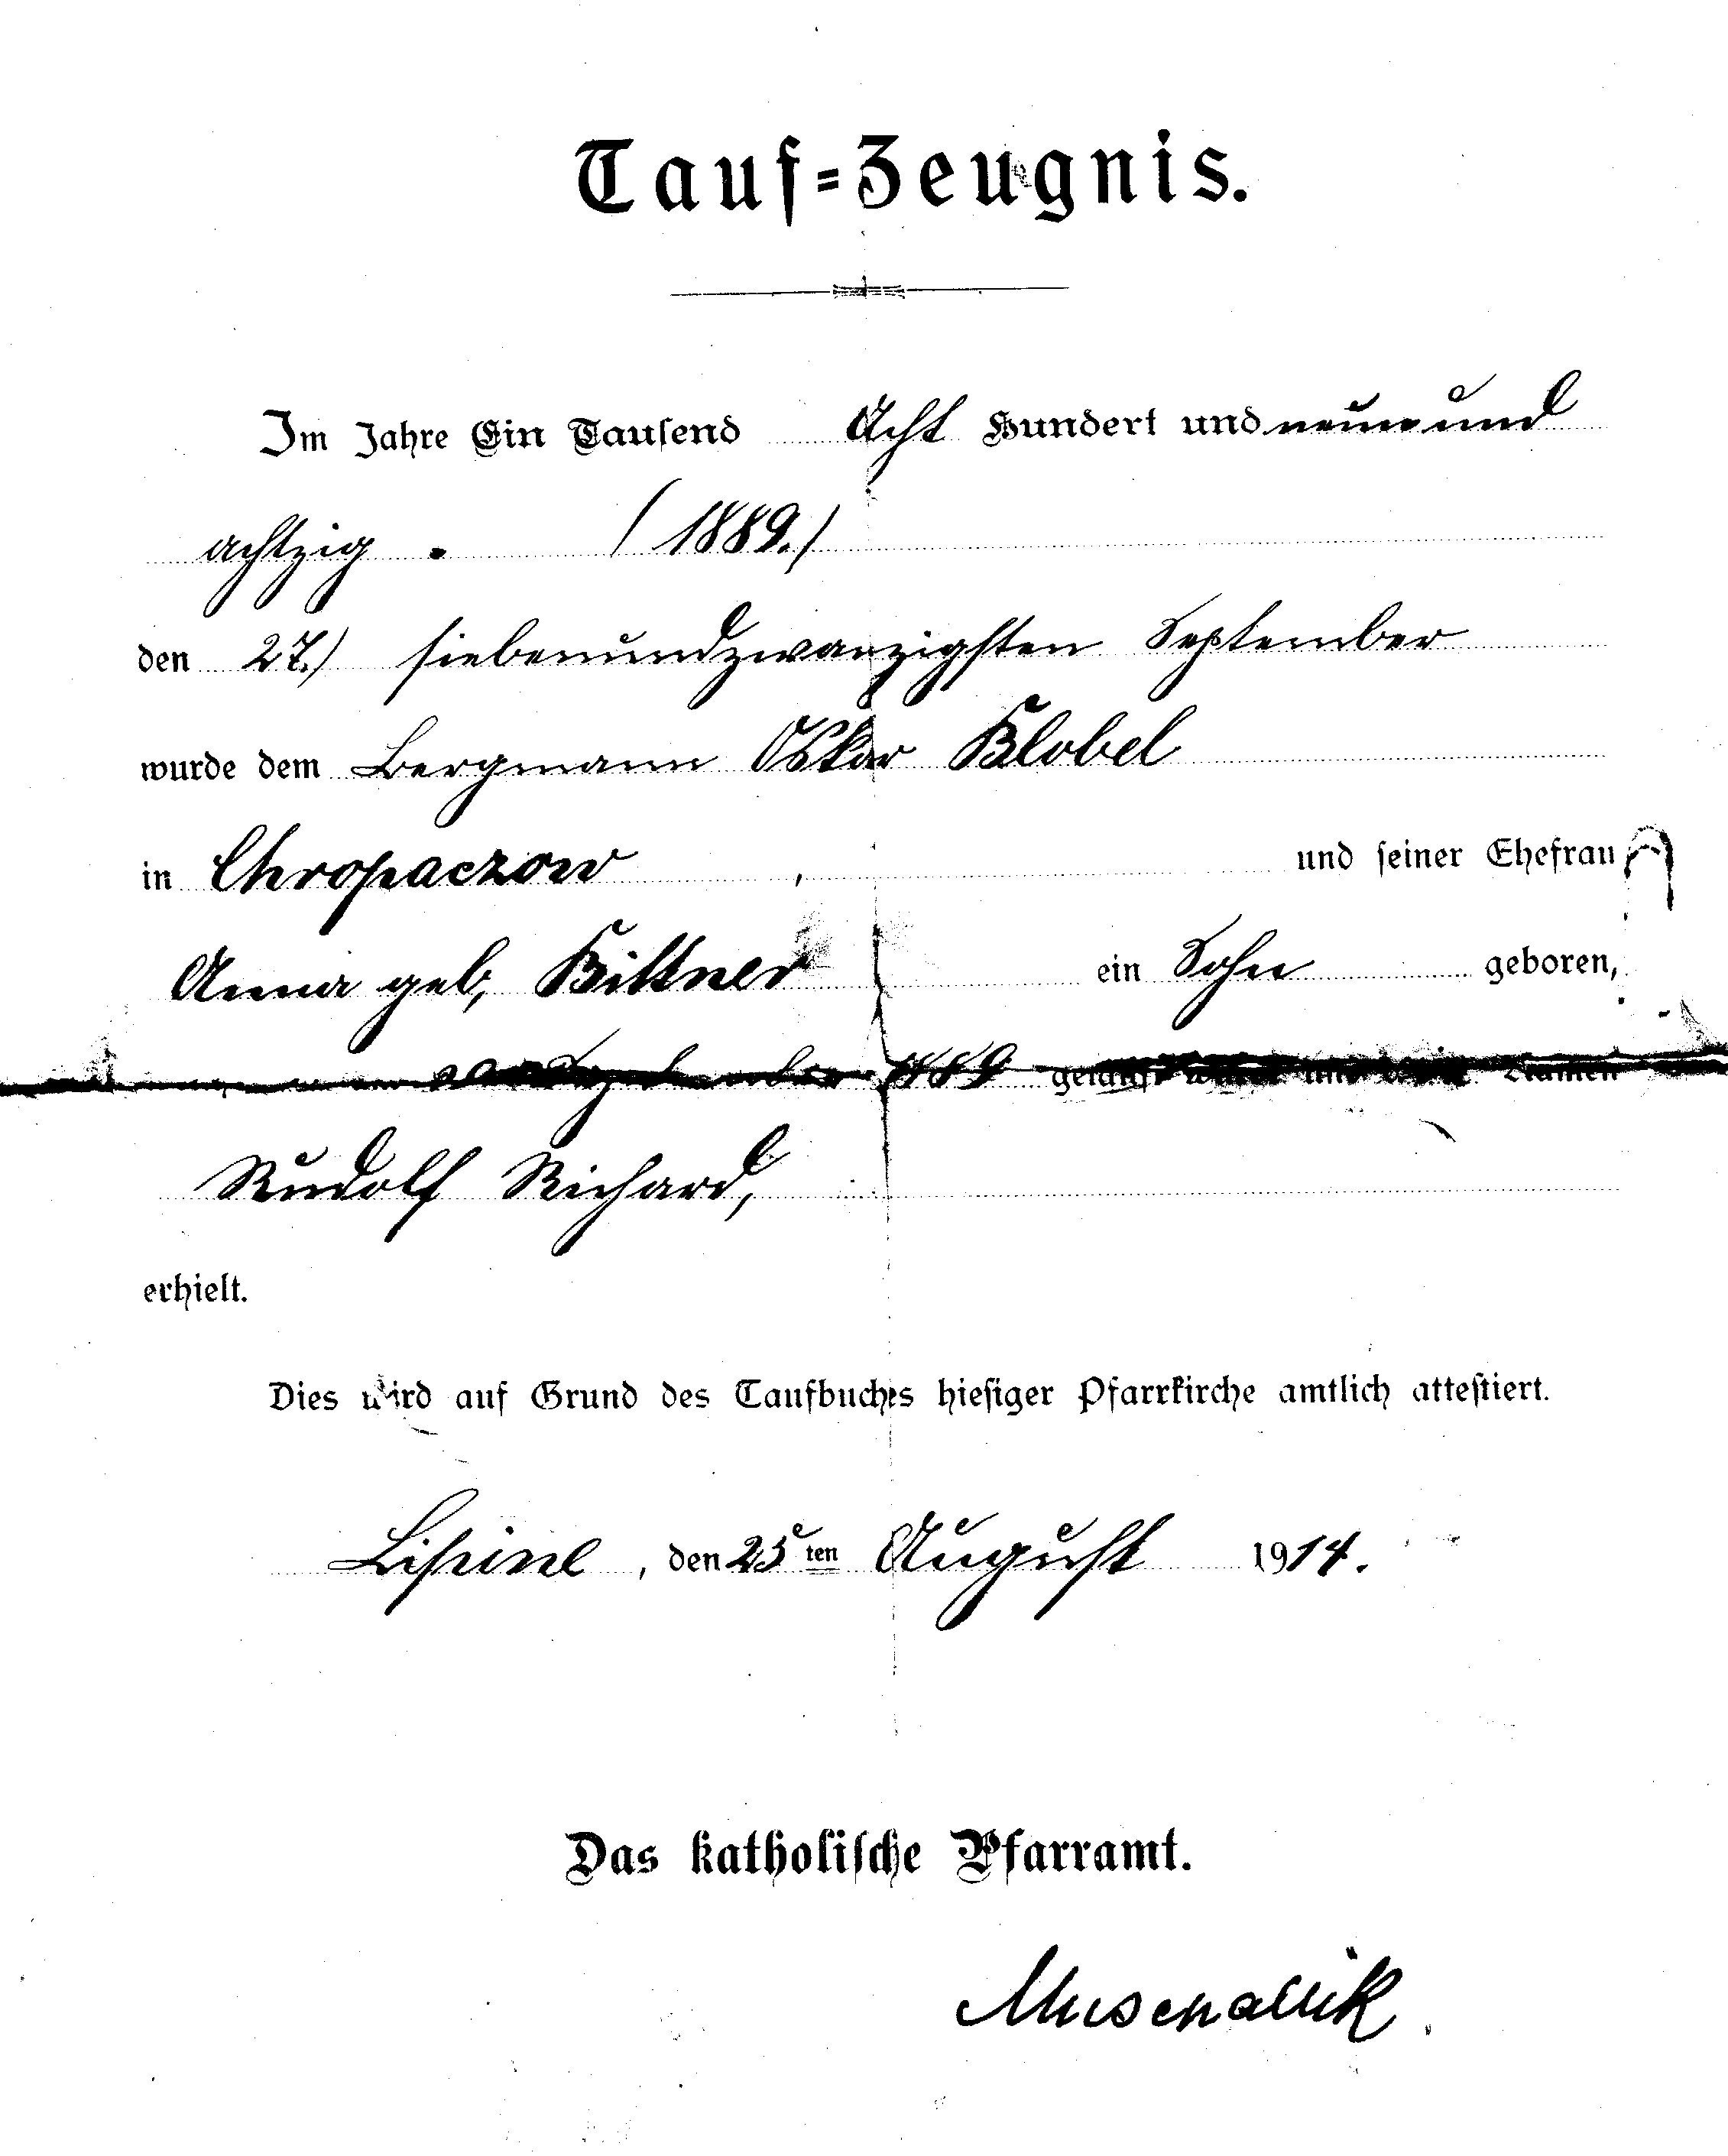 Tauf=Zeugnis.
Im Jahre Ein Tausend Acht Hundert und neunund
achtzig. (1889.)
den 27.) siebenundzwanzigsten September
wurde dem Bergmann Oskar Klobel
in Chropaczow, und seiner Ehefrau
Anna geb, Bittner ein Sohn geboren,
September 1889 getauft und Namen
Rudolf Richard,
erhielt.
Dies wird auf Grund des Taufbuches hiesiger Pfarrkirche amtlich attestiert.
Lipine, den 25ten August 1914.
Das katholische Pfarramt.